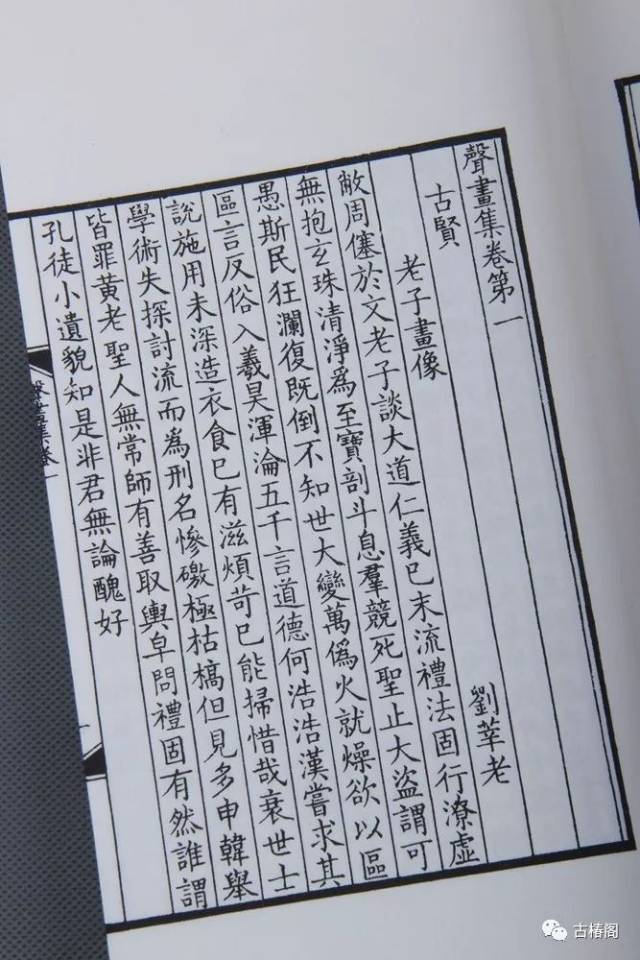 聲畫集卷第一
古賢
老子畫像 劉莘老
敝周塞於文老子談大道仁義已末流禮法固行潦虛
無抱玄珠清淨為至寶剖斗息羣競死聖止大盜謂可
愚斯民狂瀾復既倒不知世大變萬偽火就燥欲以區
區言反俗入羲昊渾淪五千言道德何浩浩漢嘗求其
說施用未深造衣食已有滋煩苛已能掃惜哉衰世士
學術失探討流而為刑名慘礉極枯槁但見多申韓舉
皆罪黃老聖人無常師有善取輿皁問禮固有然誰謂
孔徒小遺貌知是非君無論醜好
聲畫集卷一
古椿阁